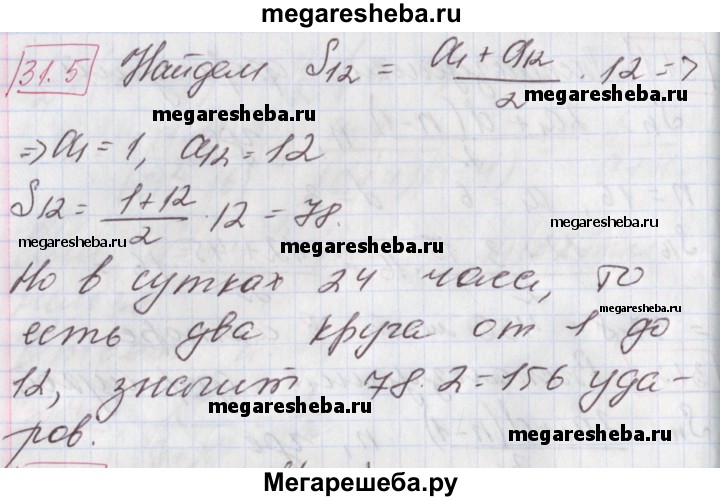 megaresheba.ru
31.5 Найдем S12 = a1 + a12 / 2 · 12 =>
megaresheba.ru
megaresheba.ru
=> a1 = 1, a12 = 12
S12 = 1+12 / 2 · 12 = 78.
megaresheba.ru
megaresheba.ru
megaresheba.ru
Но в сутках 24 часа, то
megaresheba.ru
есть два круга от 1 до
12, значит 78·2=156 уда-
megaresheba.ru
ров.
megaresheba.ru
Мегарешеба.ру